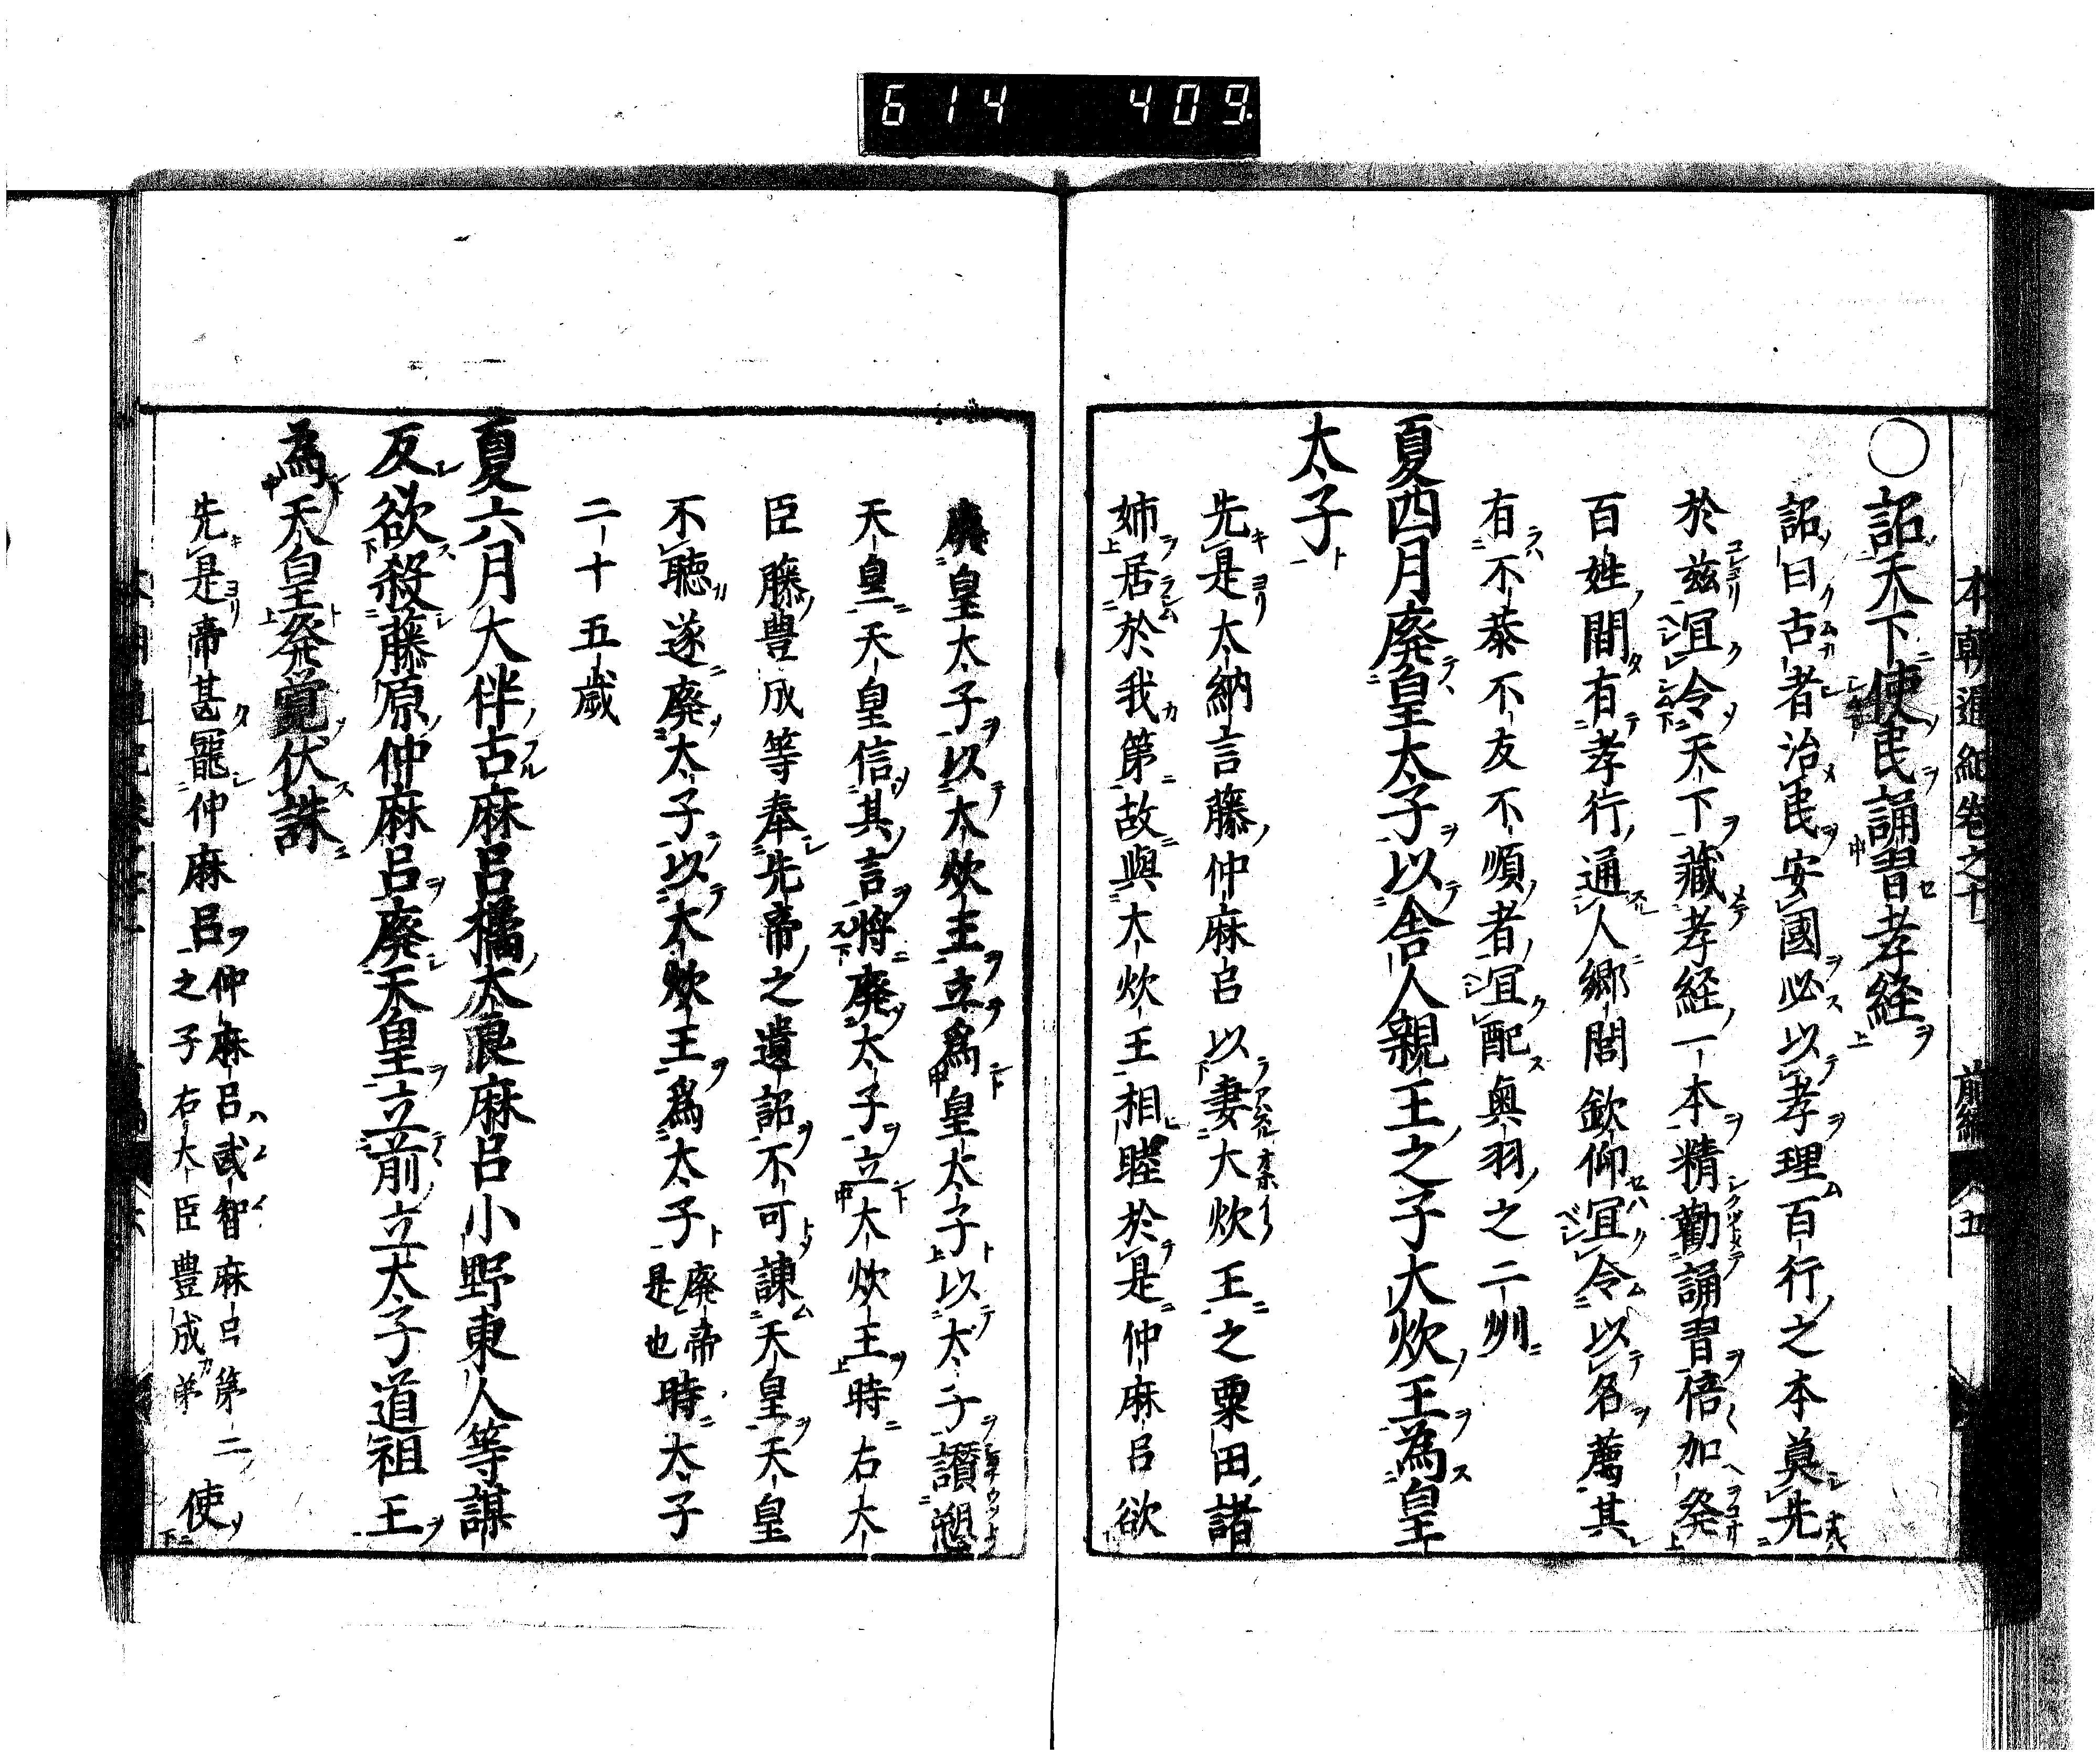 614 409
本朝通紀卷之十一 前編 五
○詔天下使民誦習孝経
詔曰古者治民安國必以孝理百行之本莫先
於茲宜令天下藏孝経一本精勤誦習倍加発
百姓間有孝行通人郷閭欽仰宜令以名薦其
有不恭不友不順者宜配奥羽之二州
夏四月廃皇太子以舎人親王之子大炊王為皇
太子
先是大納言藤仲麻呂以妻大炊王之粟田諸
姉居於我第故與大炊王相睦於是仲麻呂欲
廃皇太子以大炊王立爲皇太子以太子讃愬
天皇天皇信其言将廃太子立大炊王時右大
臣藤豊成等奉先帝之遺詔不可諌天皇天皇
不聴遂廃太子以大炊王爲太子廃帝是也時太子
二十五歳
夏六月大伴古麻呂橘太良麻呂小野東人等謀
反欲殺藤原仲麻呂廃天皇立前立太子道祖王
為天皇発覚伏誅
先是帝甚寵仲麻呂仲麻呂武智麻呂第二之子右大臣豊成弟使